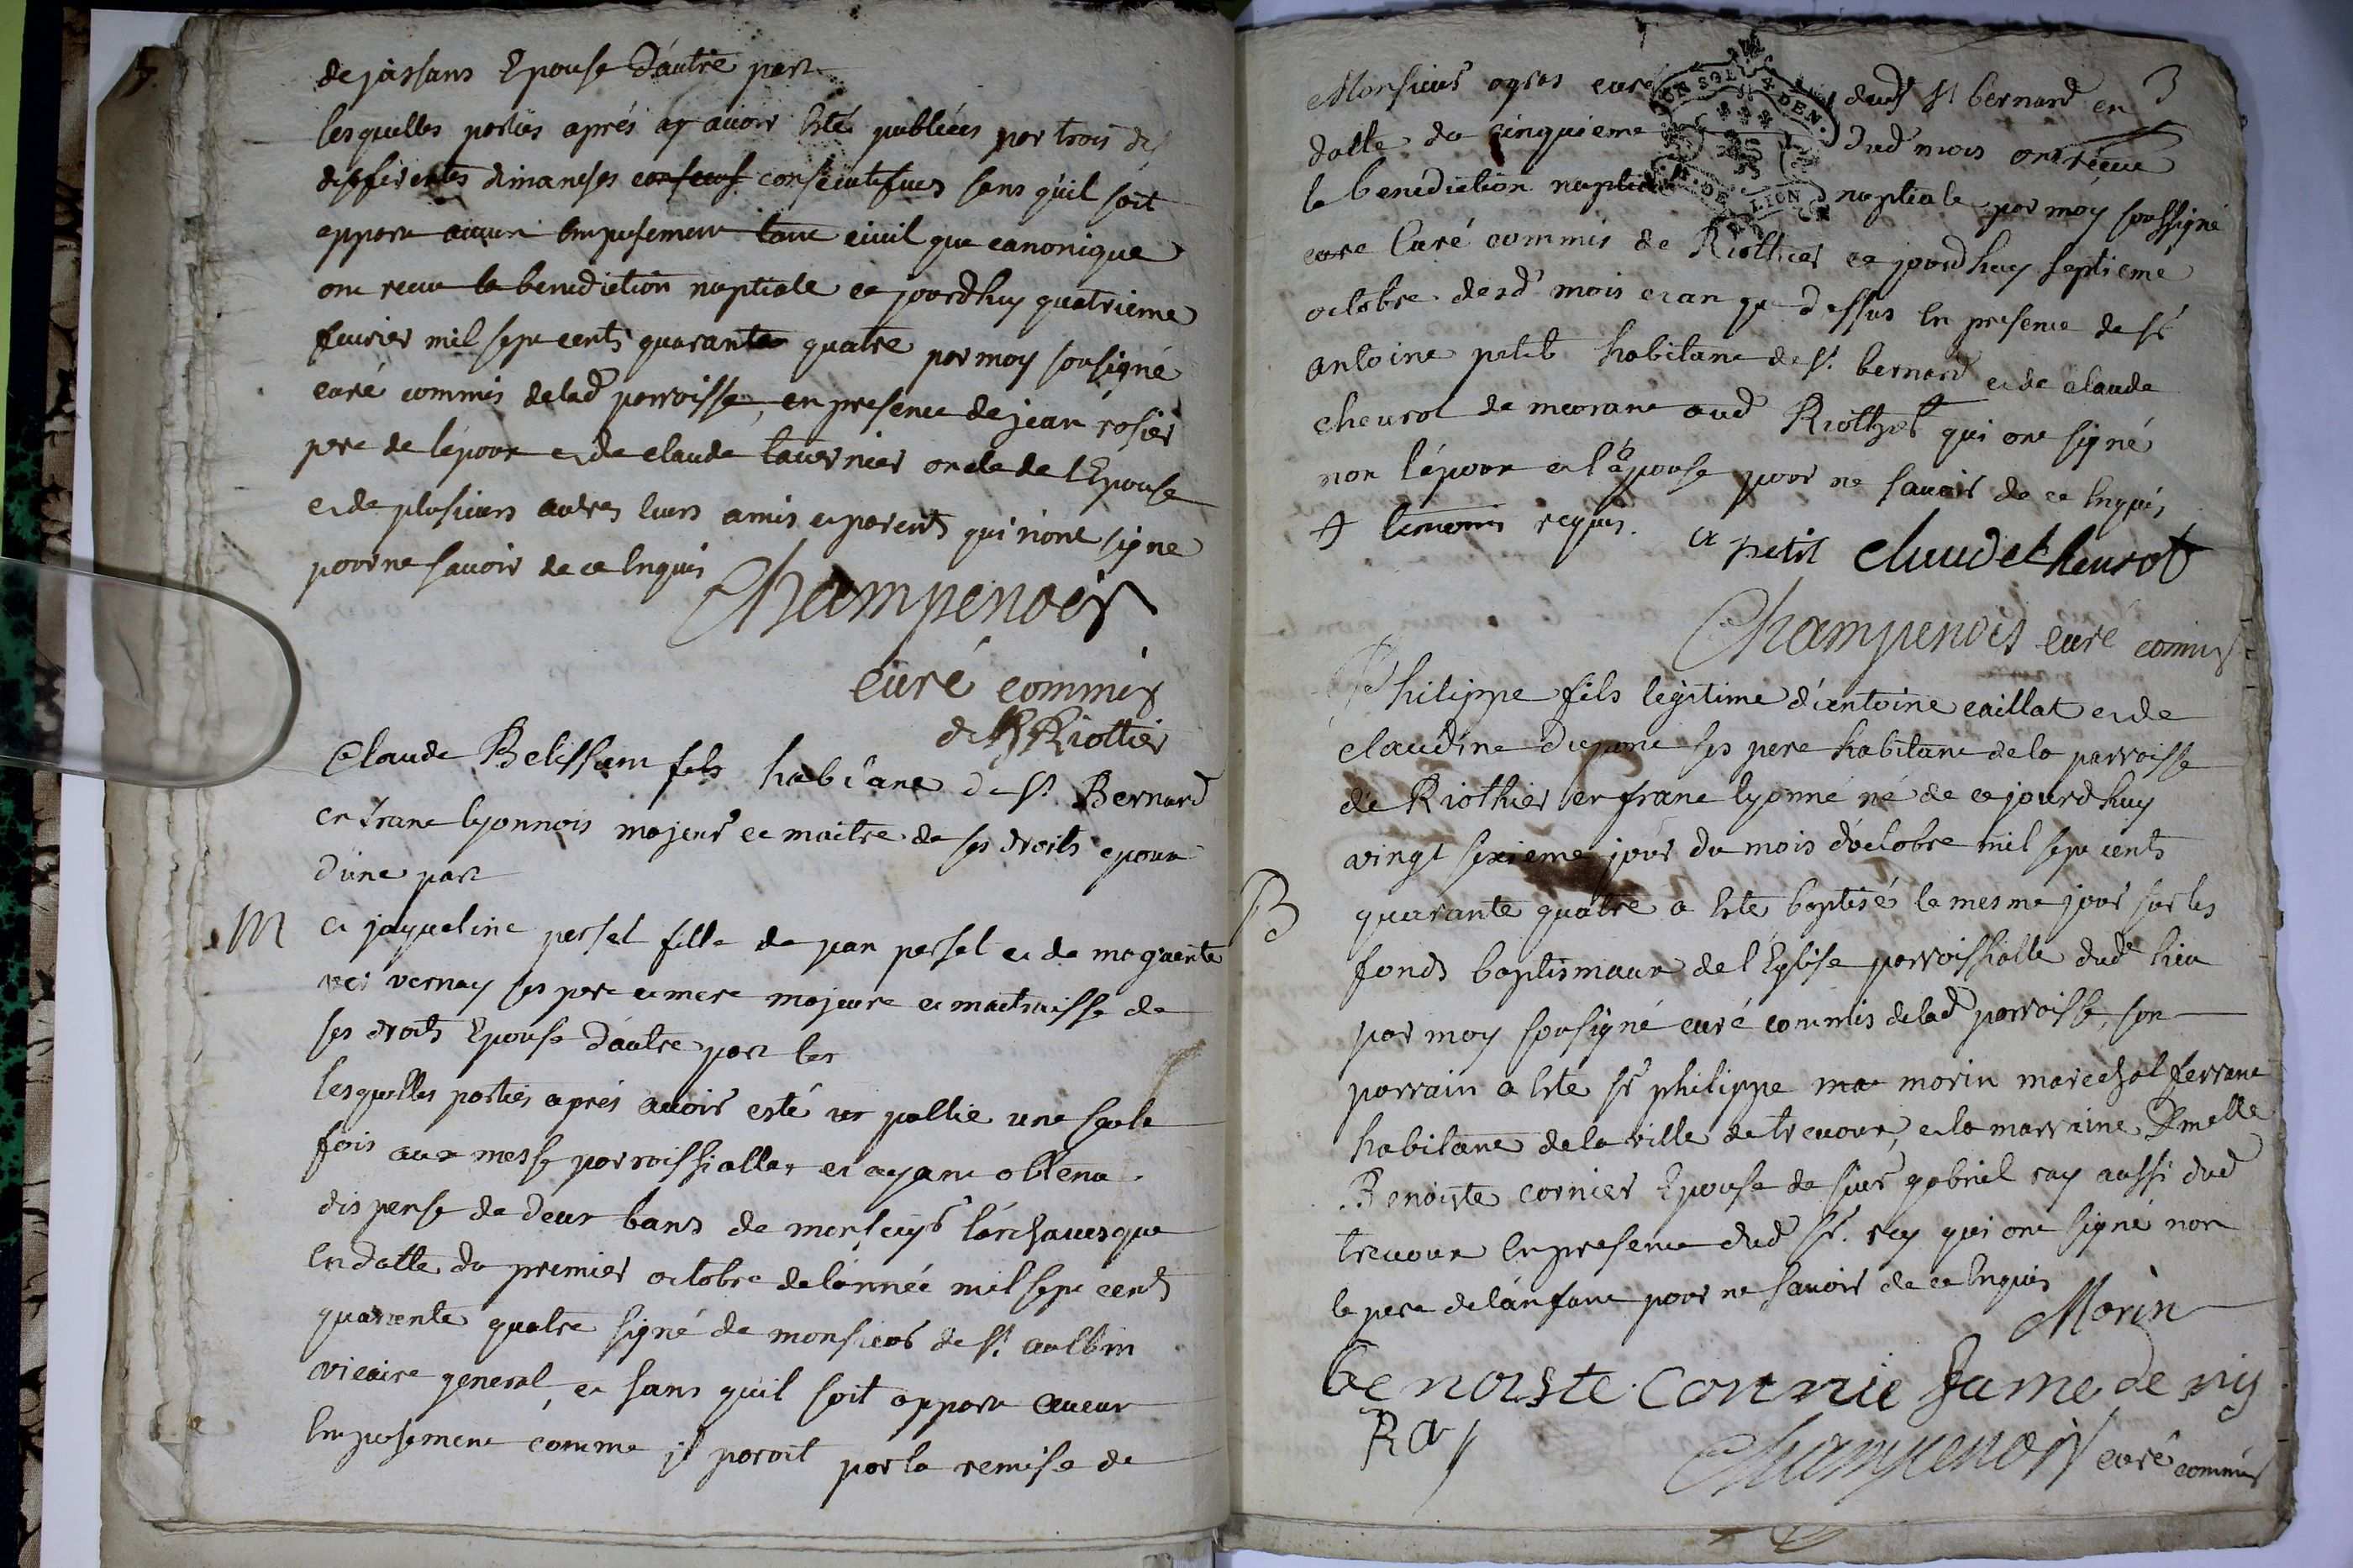 de jassans Epouse d'autre part
lesquelles parties aprés ay avoir Esté publiées par trois di
differentes dimanches consecuf consecutifues sans quil soit
apparu aucun Empechement tant civil que canonique
ont receu la benediction nuptiale ce jourdhuy quatrieme
fevrier mil sept cents quarante quatre par moy sousigné
curé commis de lad parroisse, en presence de jean rosier
pere de lépoux et de claude tavernier oncle de l'Epouse
et de plusieurs autres leurs amis et parents qui n'ont signe
pour ne savoir de ce Enquis
Champenois
curé commis
de Riottier
Claude Belissam fils habitant de St Bernard
en franc lyonnois majeur et maitre de ses droits epoux
d'une part
M
et jaqueline persel fille de jean persel et de marguerite
ver vernay ses pere et mere majeure et maitraisse de
ses droits Epouse d'autre part les
lesquelles parties aprés avoir esté pu pullie une seule
fois aux messe parroissialles et ayant obtenu
dispense de deux bans de monseigr l'archevesque
En datte du premier octobre de lánnée mil sept cents
quarente quatre signé de monsieur de St. aulbin
vicaire general, et sans quil soit apparu aucun
Empechement comme jl paroit par la remise de
3
Monsieur ogros curé dud St bernard en
datte du cinquieme dud mois ont réçeue
la benediction nuptia nuptiale par moy soussigné
cure Curé commis de Riothier ce jourdhuy septieme
octobre desd mois et an que dessus En presence de Sr
antoine petit habitant de St. bernard et de claude
cheurot de meorane aud Riothier qui ont signé
non l'époux et l'épouse pour ne savoir de ce Enquis
temoins requis. a petit claude cheurot
Champenois curé commis
Philippe fils legitime d'antoine caillat et de
claudine dupont ses pere habitant de la parroisse
de Riothier en franc lyonné né de ce jourdhuy
vingt sixieme jour du mois d'octobre mil sept cents
B
quarante quatre a Esté baptisé le mesme jour sur les
fonds baptismaux de l'Eglise parroissialle dud lieu
par moy sousigné curé commis de lad parroisse, son
parrain a Esté Sr philippe ma morin marechal ferrant
habitant de la ville de trevoux, et la marraine Dmelle
Benoiste cornier Epouse de sieur gabriel ray aussi dud
trevoux En presence dud Sr. ray qui ont signé non
le pere de l'anfant pour ne savoir de ce Enquis
Morin
benoiste cornie fame de
Ray
Champenois curé commis